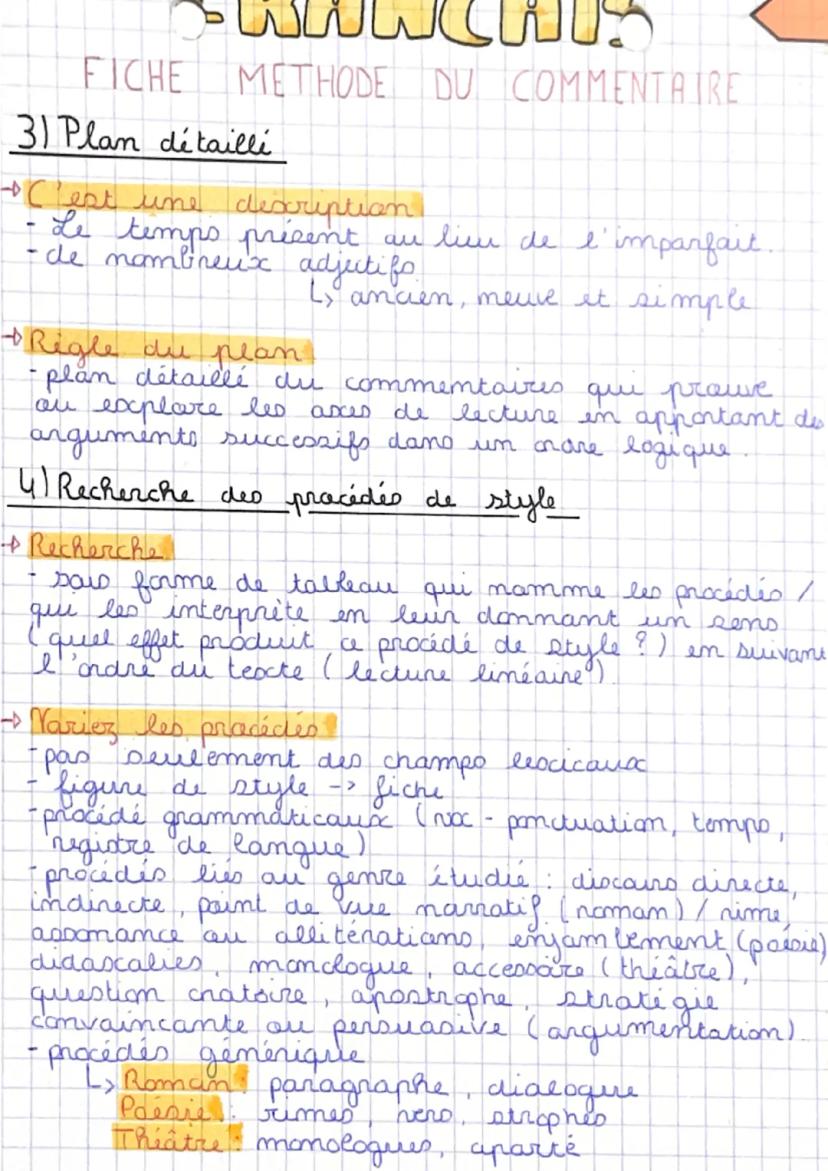 FRANCAIS
FICHE METHODE DU COMMENTAIRE
3) Plan détaillé
→ C'est une description
- Le temps présent au lieu de l'imparfait.
- de nombreux adjectifs
↳ ancien, neuve et simple
→ Règle du plan
- plan détaillé du commentaires qui prouve
ou explore les axes de lecture en apportant des
arguments successifs dans un ordre logique.
4) Recherche des procédés de style
→ Recherche
- sous forme de tableau qui nomme les procédés /
qui les interprète en leur donnant un sens
(quel effet produit ce procédé de style ?) en suivant
l'ordre du texte (lecture linéaire)
→ Variez les procédés
- pas seulement des champs lexicaux
- figure de style -> fiche
- procédé grammaticaux (vox - ponctuation, temps,
registre de langue)
- procédés liés au genre étudié : discours directe,
indirecte, point de vue narratif (roman) / rime,
assonance ou allitérations, enjambement (poésie)
didascalies, monologue, accessoire (théâtre),
question oratoire, apostrophe, stratégie
convaincante ou persuasive (argumentation)
- procédés générique
↳ Roman : paragraphe, dialogue
Poésie : rimes, vers, strophes
Théâtre : monologues, aparté